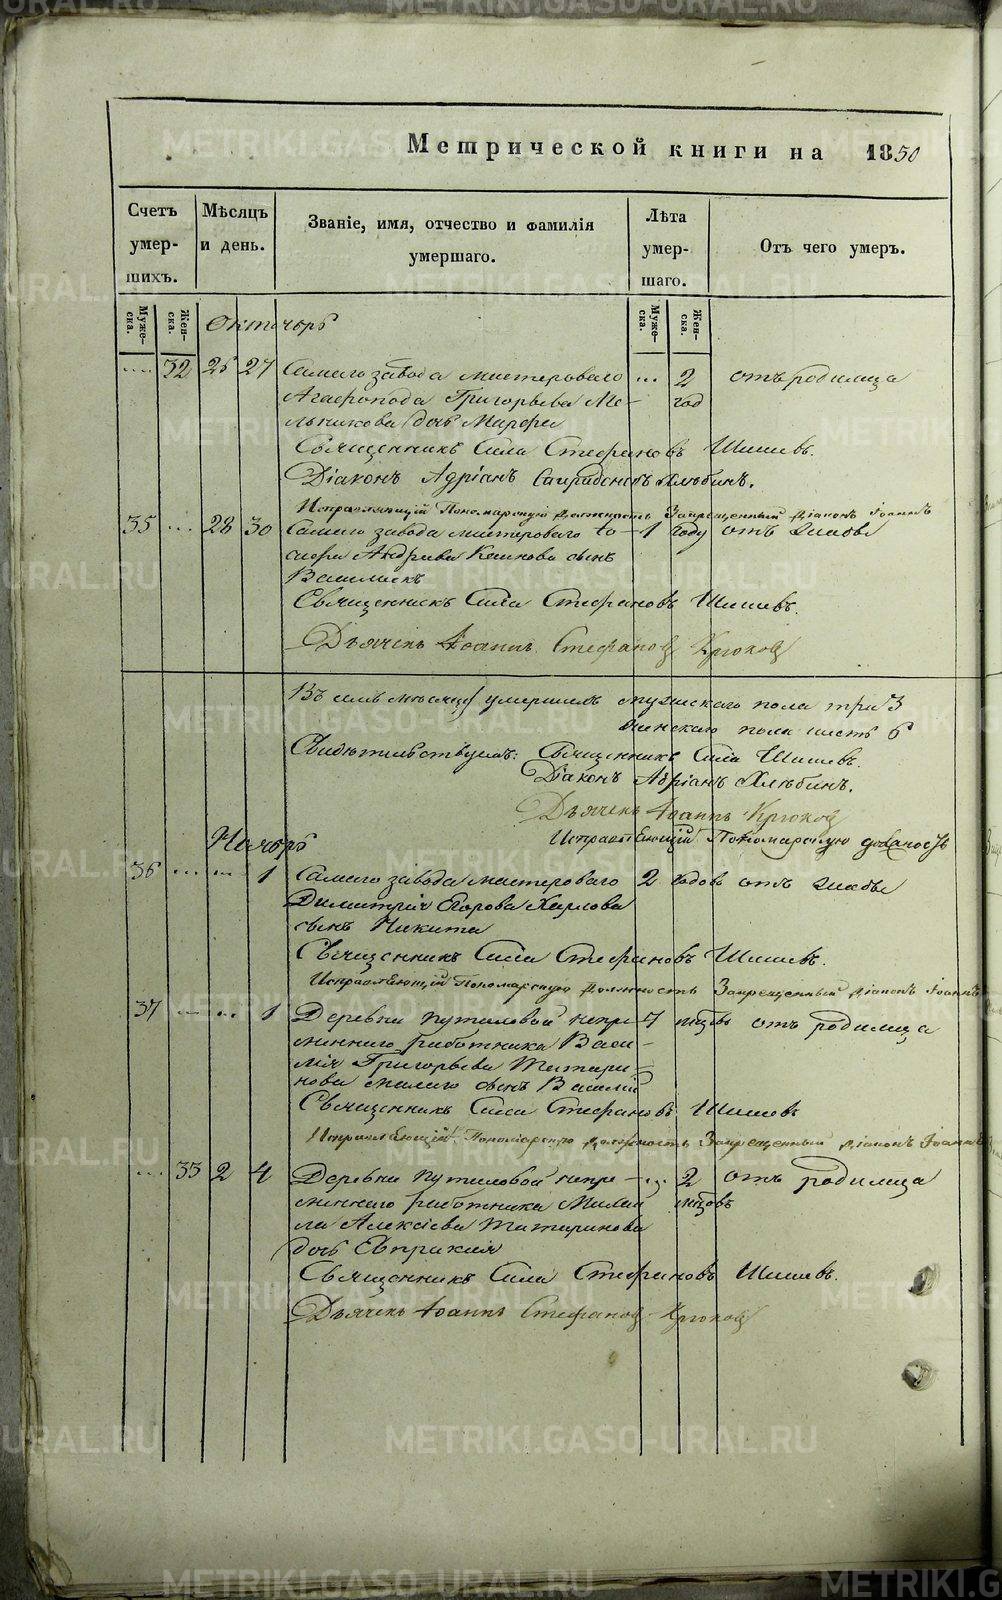 METRIKI.GASO-URAL.RU
Метрической книги на 1850
Счетъ умер-шихъ.
Мѣсяцъ и день.
Званіе, имя, отчество и фамилія умершаго.
Лѣта умер-шаго.
Отъ чего умеръ.
Муже-ска.
Жен-ска.
Муже-ска.
Жен-ска.
Октябрь
.... 32 25 27 Самаго завода мастероваго ... 2 отъ родимца
Агафопода Григорьева Ме- год
льникова дочь Марфа
Священникъ Сила Стефановъ Шишевъ.
Діаконъ Адріанъ Хлѣбинъ.
Исправляющій Пономарскую Должность Запрещенный Діаконъ Іоаннъ
35 ... 28 30 Самаго завода мастероваго 1 году отъ
Андреева сынъ
Священникъ Сила Стефановъ Шишевъ.
Дьячекъ Іоаннъ Стефановъ Крюковъ
Въ семъ мѣсяцѣ умершихъ мужескаго пола три 3
женскаго пола шесть 6
Свидѣтельствуемъ: Священникъ Сила Шишевъ.
Діаконъ Адріанъ Хлѣбинъ.
Дьячекъ Іоаннъ Крюковъ
Ноябрь
Исправляющій Пономарскую должность
36 ... ... 1 Самаго завода мастероваго 2 годовъ отъ
Димитрія Егорова
сынъ Никита
Священникъ Сила Стефановъ Шишевъ.
Исправляющій Пономарскую Должность Запрещенный Діаконъ Іоаннъ
37 ... ... 1 Деревни Путиловой непре- 7 мцовъ отъ родимца
меннаго работника Васи-
лія Григорьева Татари-
нова малаго сынъ Василій
Священникъ Сила Стефановъ Шишевъ
Исправляющій Пономарскую Должность Запрещенный Діаконъ Іоаннъ
... 33 2 4 Деревни Путиловой непре- ... 2 отъ родимца
меннаго работника Михай мцовъ
ла Алексіева Татаринова
дочь Евпраксія
Священникъ Сила Стефановъ Шишевъ.
Дьячекъ Іоаннъ Стефановъ Крюковъ